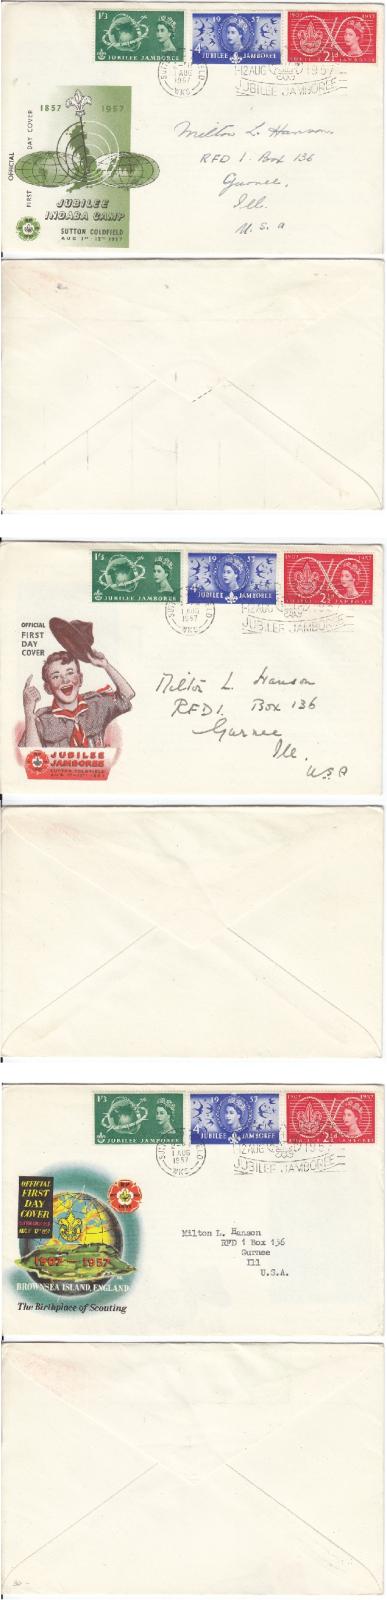 1/3
JUBILEE JAMBOREE
19 57
4D
JUBILEE JAMBOREE
1907 1957
2½D
JUBILEE JAMBOREE
1 AUG
1957
WKS.
1-12 AUG 1957
JUBILEE JAMBOREE
1857 1957
OFFICIAL
FIRST DAY COVER
JUBILEE
INDABA CAMP
SUTTON COLDFIELD
AUG 1ST - 12TH 1957
Milton L. Hanson
RFD 1. Box 136
Gurnee,
Ill.
U.S.A
1/3
JUBILEE JAMBOREE
19 57
4D
JUBILEE JAMBOREE
1907 1957
2½D
JUBILEE JAMBOREE
1 AUG
1957
WKS.
1-12 AUG
JUBILEE JAMBOREE
OFFICIAL
FIRST
DAY
COVER
JUBILEE
JAMBOREE
SUTTON COLDFIELD
Milton L. Hanson
RFD 1. Box 136
Gurnee
Ill.
USA
1/3
JUBILEE JAMBOREE
19 57
4D
JUBILEE JAMBOREE
1907 1957
2½D
JUBILEE JAMBOREE
1 AUG
1957
WKS.
1-12 AUG 1957
JUBILEE JAMBOREE
OFFICIAL
FIRST
DAY
COVER
SUTTON COLDFIELD
1907-1957
BROWNSEA ISLAND, ENGLAND
The Birthplace of Scouting
Milton L. Hanson
RFD 1 Box 136
Gurnee
Ill
U.S.A.
30-